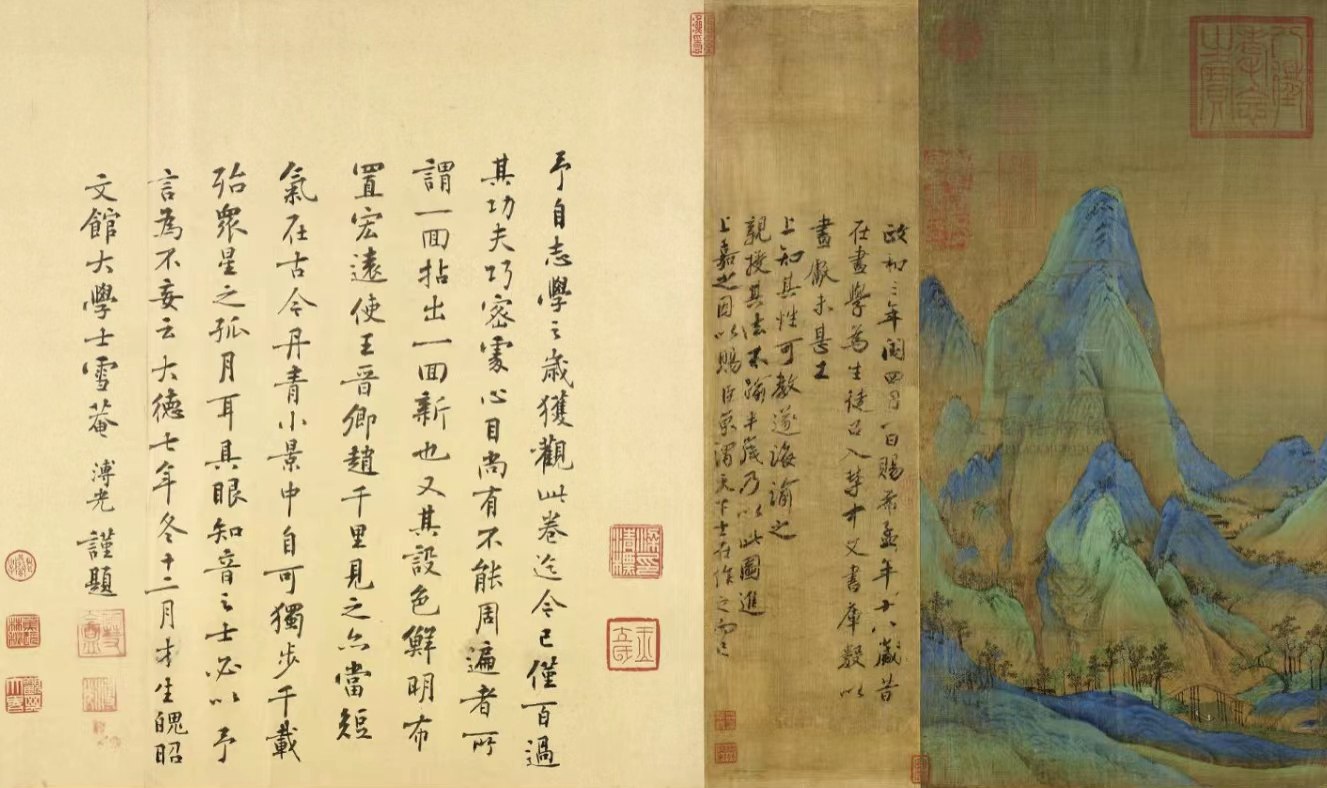 八徵
耄念
之寶
政和三年閏四月一日賜希孟年十八歲昔
在畫學為生徒召入禁中文書庫數以
畫獻未甚工
上知其性可教遂誨諭之
親授其法不踰半歲乃以此圖進
上嘉之因以賜臣京謂天下士在作之而已
予自志學之歲獲觀此卷迄今已僅百過
其功夫巧密處心目尚有不能周遍者所
謂一回拈出一回新也又其設色鮮明布
置宏遠使王晉卿趙千里見之亦當短
氣在古今丹青小景中自可獨步千載
殆眾星之孤月耳具眼知音之士必以予
言為不妄云大德七年冬十二月才生魄昭
文館大學士雪菴溥光謹題